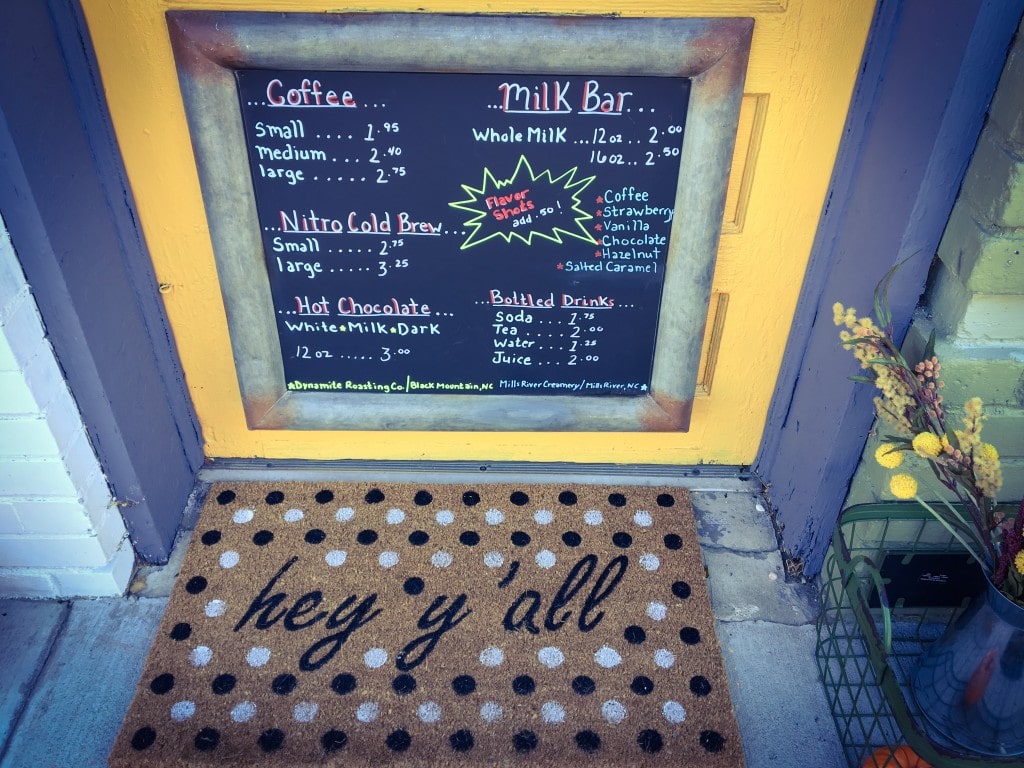 ...Coffee...
Small .... 1.95
medium ... 2.40
large ..... 2.75
...Nitro Cold Brew...
Small ..... 2.75
large ..... 3.25
...Hot Chocolate...
White★Milk★Dark
12 oz ..... 3.00
★Dynamite Roasting Co./Black Mountain, NC
...Milk Bar...
Whole Milk ...12 oz .. 2.00
16 oz .. 2.50
Flavor
Shots
add .50!
*Coffee
*Strawberry
*Vanilla
*Chocolate
*Hazelnut
*Salted Caramel
...Bottled Drinks...
Soda ... 1.75
Tea .... 2.00
Water ... 1.25
Juice ... 2.00
Mills River Creamery/Mills River, NC★
hey y'all